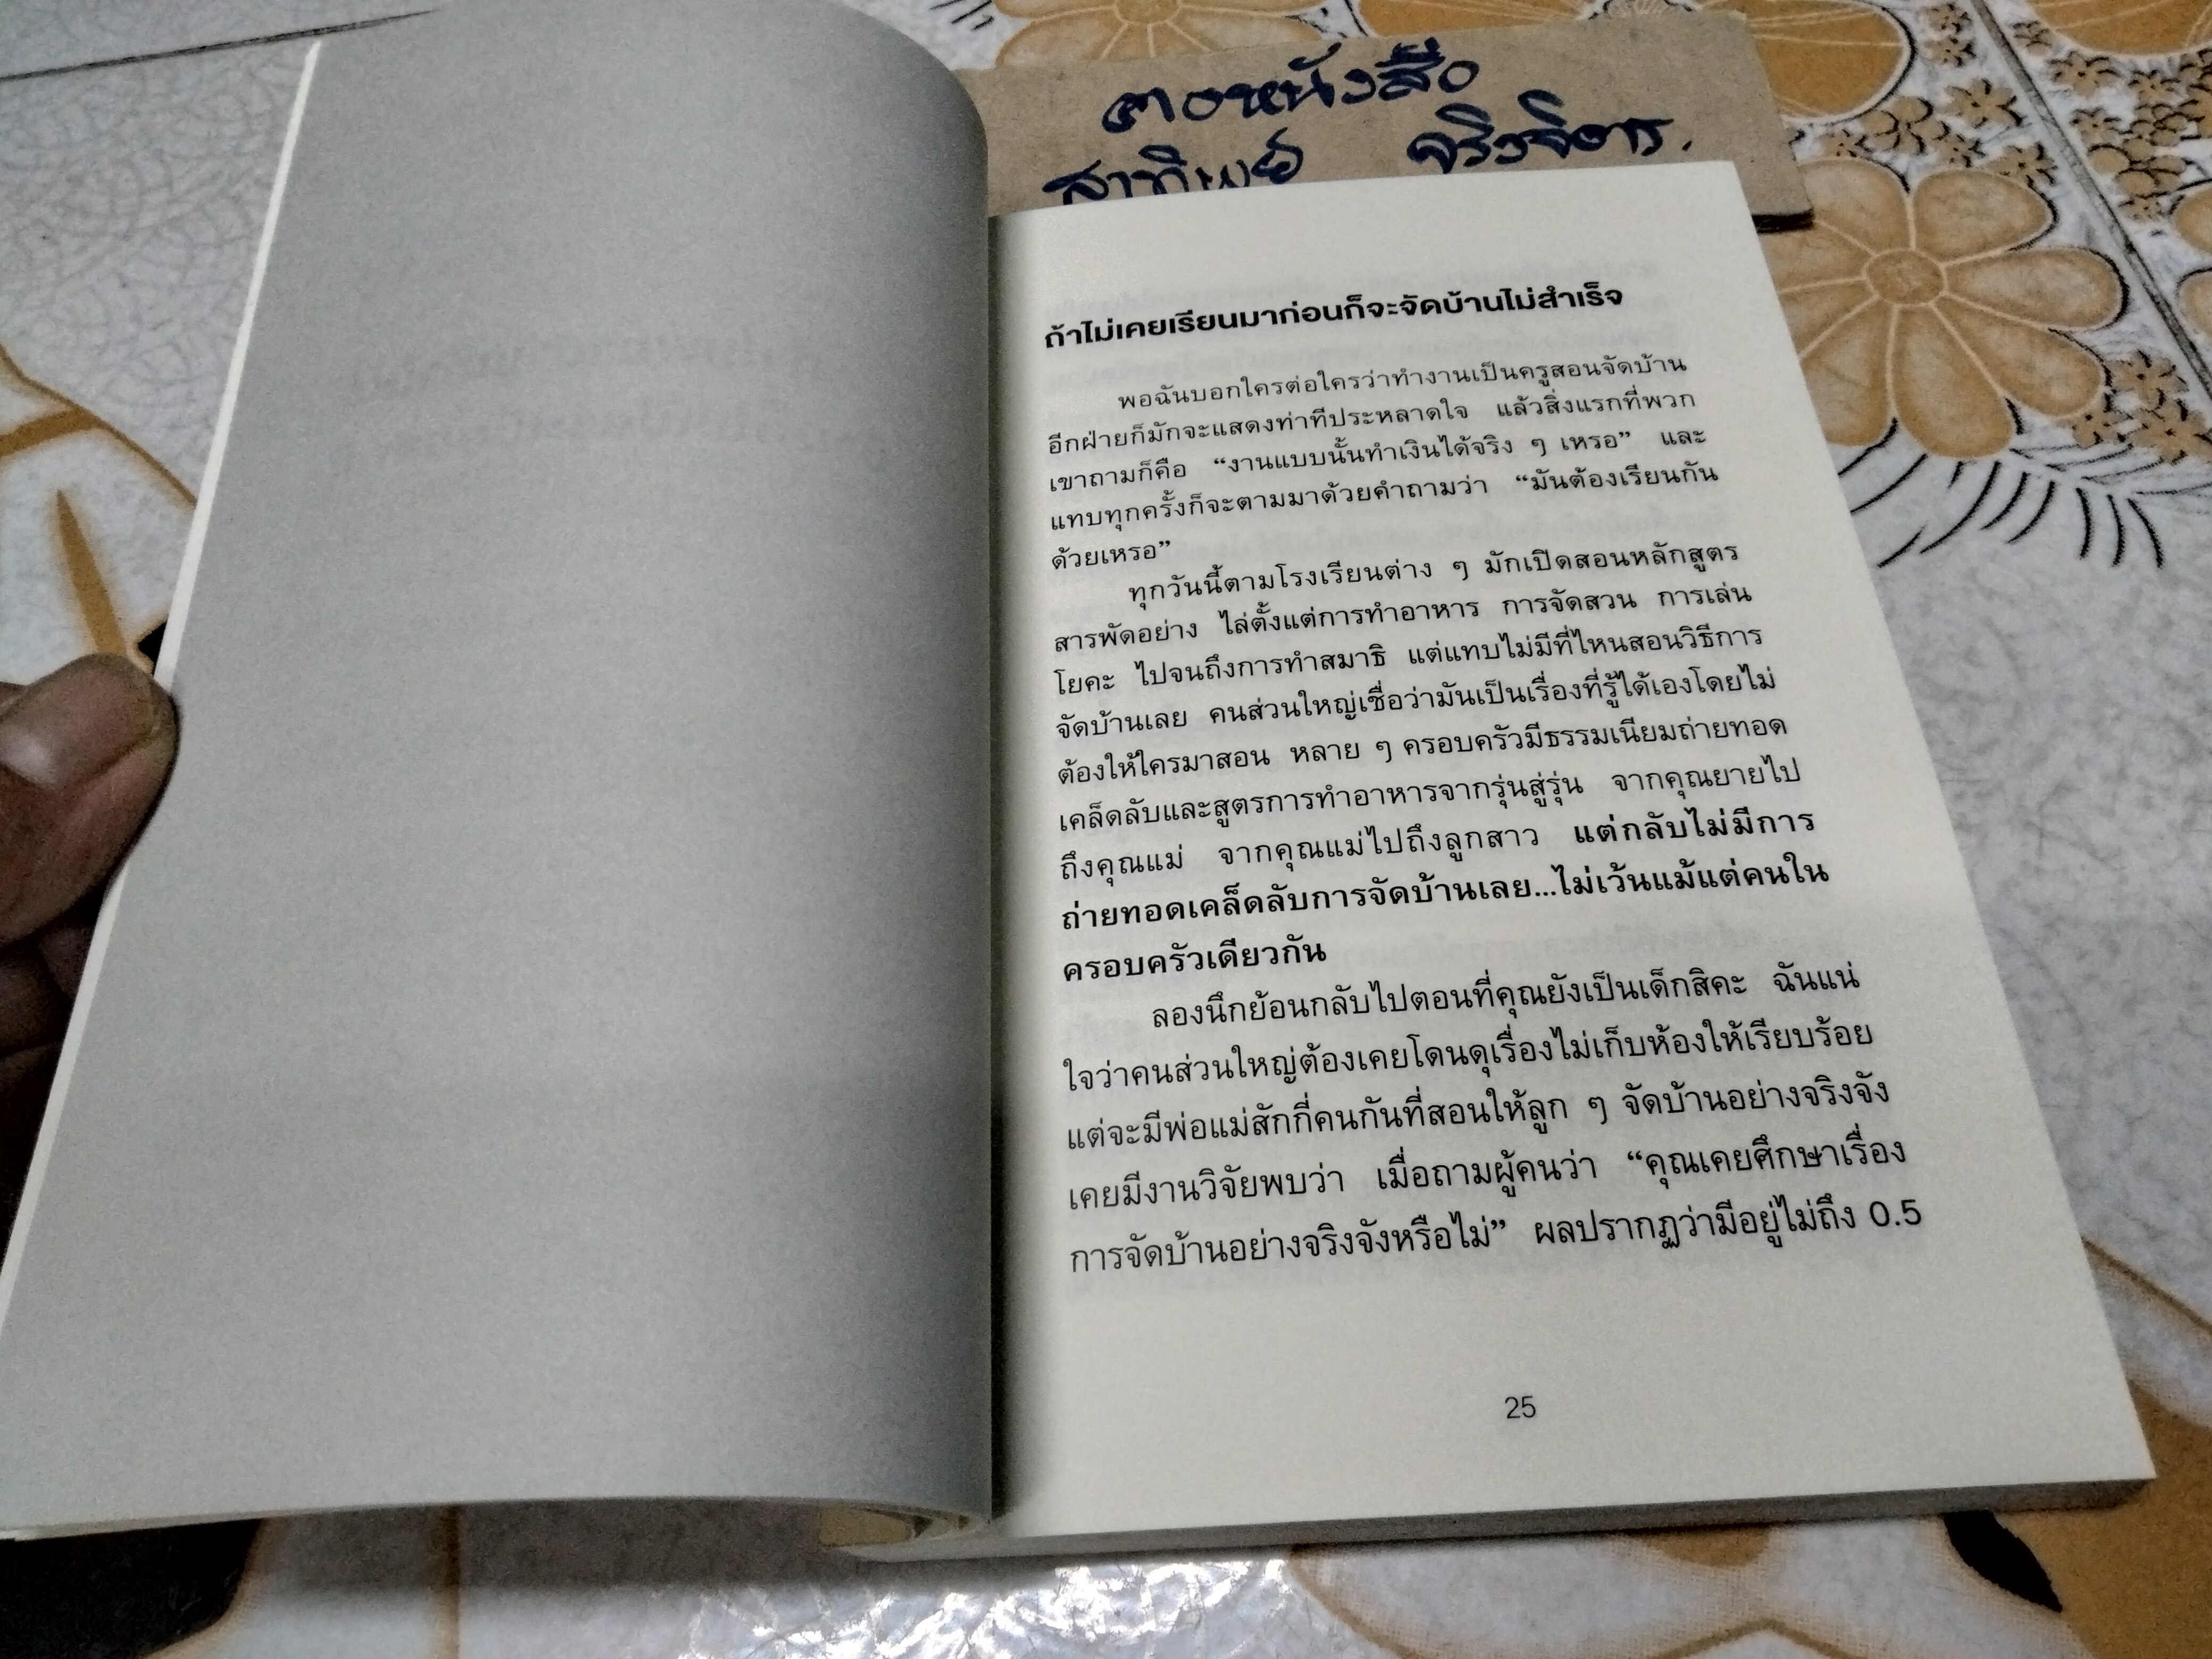 ถ้าไม่เคยเรียนมาก่อนก็จะจัดบ้านไม่สำเร็จ
พอฉันบอกใครต่อใครว่าทำงานเป็นครูสอนจัดบ้าน
อีกฝ่ายก็มักจะแสดงท่าทีประหลาดใจ แล้วสิ่งแรกที่พวก
เขาถามก็คือ “งานแบบนั้นทำเงินได้จริง ๆ เหรอ” และ
แทบทุกครั้งก็จะตามมาด้วยคำถามว่า “มันต้องเรียนกัน
ด้วยเหรอ”
ทุกวันนี้ตามโรงเรียนต่าง ๆ มักเปิดสอนหลักสูตร
สารพัดอย่าง ไล่ตั้งแต่การทำอาหาร การจัดสวน การเล่น
โยคะ ไปจนถึงการทำสมาธิ แต่แทบไม่มีที่ไหนสอนวิธีการ
จัดบ้านเลย คนส่วนใหญ่เชื่อว่ามันเป็นเรื่องที่รู้ได้เองโดยไม่
ต้องให้ใครมาสอน หลาย ๆ ครอบครัวมีธรรมเนียมถ่ายทอด
เคล็ดลับและสูตรการทำอาหารจากรุ่นสู่รุ่น จากคุณยายไป
ถึงคุณแม่ จากคุณแม่ไปถึงลูกสาว แต่กลับไม่มีการ
ถ่ายทอดเคล็ดลับการจัดบ้านเลย...ไม่เว้นแม้แต่คนใน
ครอบครัวเดียวกัน
ลองนึกย้อนกลับไปตอนที่คุณยังเป็นเด็กสิคะ ฉันแน่
ใจว่าคนส่วนใหญ่ต้องเคยโดนดุเรื่องไม่เก็บห้องให้เรียบร้อย
แต่จะมีพ่อแม่สักกี่คนกันที่สอนให้ลูก ๆ จัดบ้านอย่างจริงจัง
เคยมีงานวิจัยพบว่า เมื่อถามผู้คนว่า “คุณเคยศึกษาเรื่อง
การจัดบ้านอย่างจริงจังหรือไม่” ผลปรากฏว่ามีอยู่ไม่ถึง 0.5
25